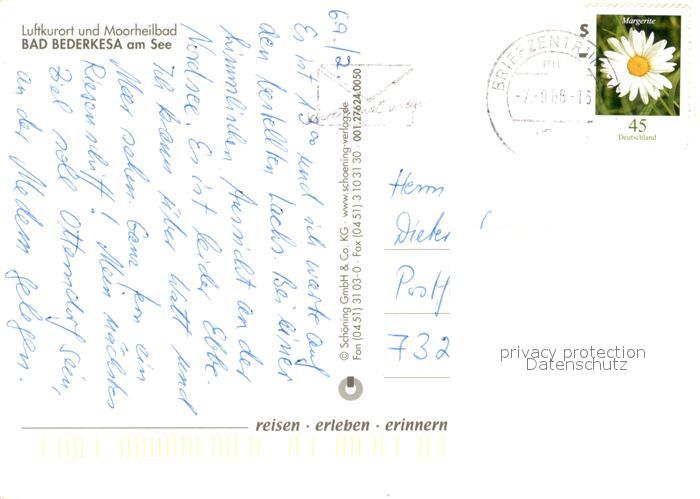 Luftkurort und Moorheilbad
BAD BEDERKESA am See
69./2.
Es ist 13°° und ich warte auf
den bestellten Lachs. Bei einer
himmlischen Aussicht an der
Nordsee. Es ist leider Ebbe.
Ich kann über Watt und
Meer sehen. Ganz fern ein
Riesenschiff! Mein nächstes
Ziel soll Otterndorf sein,
an der Medem gelegen.
© Schöning GmbH & Co. KG · www.schoening-verlag.de
Fon (04 51) 31 03-0 · Fax (04 51) 3 10 31 30 · 001.27624.0050
BRIEFZENTRUM
-7.-9.08-16
S
Margerite
45
Deutschland
Herrn
Dieter
Postf
732
privacy protection
Datenschutz
reisen · erleben · erinnern